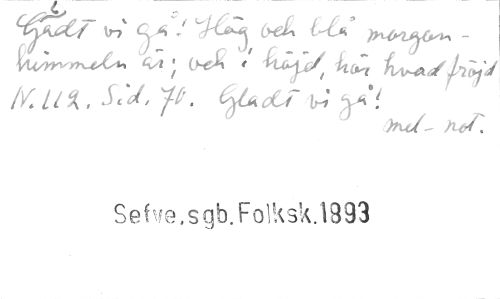 Gladt vi gå! Hög och blå morgon-
himmeln är; och i höjd, hör hvad fröjd
N. 112. Sid. 70. Gladt vi gå!
mel-not.
Sefve.sgb.Folksk.1893